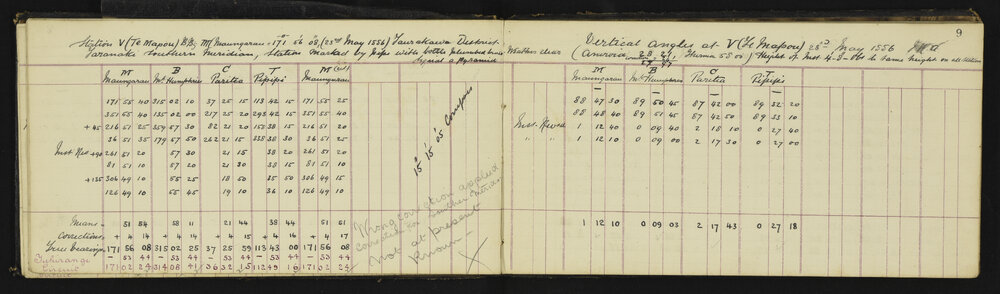 9
Station V (Te Mapou) B.B; M (Maungarau = 171 56 08, (23rd May 1886) Taurakawa District
Taranaki Southern Meridian, Station marked by pipe with bottle
Weather clear
Signal a Pyramid
Vertical Angles at V (Te Mapou) 23rd May 1886
(Aneroid 29 29 Thermo 53 00) Height of Inst 4-8 - Obs to same height on all stations
M B C T M
Maungarau Mt Humphries Paritea Pipipi Maungarau
M B C T
Maungarau Mt Humphries Paritea Pipipi
171 55 40 315 02 10 37 25 15 113 42 15 171 55 25
88 47 30 89 50 45 87 42 00 89 32 20
351 55 40 135 02 00 217 25 20 293 42 15 351 55 40
88 48 40 89 51 45 87 42 50 89 33 10
+45 216 51 25 359 57 30 82 21 20 158 38 15 216 51 20
Inst. Revd 1 12 40 0 09 40 2 18 10 0 27 40
36 51 35 179 57 50 262 21 15 338 38 30 36 51 25
" " 1 12 10 0 09 00 2 17 30 0 27 00
Inst Rev +90 261 51 20 57 30 21 15 38 20 261 51 20
81 51 10 57 20 21 30 38 15 81 51 10
+135 306 49 10 55 25 18 50 35 50 306 49 15
126 49 10 55 45 19 10 36 10 126 49 10
15° 15' 05 Compass
Wrong correction applied
not at present
known
X
Means 51 54 58 11 21 44 38 44 51 51
1 12 10 0 09 03 2 17 43 0 27 18
Corrections + 4 14 + 4 14 + 4 15 + 4 16 + 4 17
True bearings 171 56 08 315 02 25 37 25 59 113 43 00 171 56 08
Tuhirangi - 53 44 - 53 44 - 53 44 - 53 44 - 53 44
Circuit 171 02 24 314 08 41 36 32 15 112 49 16 171 02 24